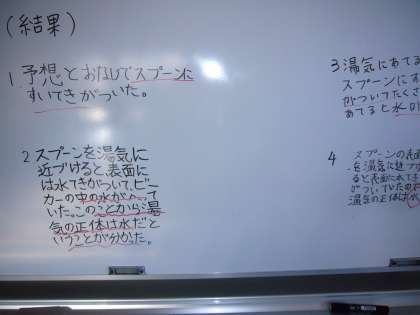 (結果)
1.予想とおなじでスプーンに
すいてきがついた。
2 スプーンを湯気に
近づけると、表面に
は水てきがついて、ビー
カーの中の水がへって
いた。このことから湯
気の正体は水だと
いうことが分かった。
3 湯気にあてる
スプーンにす
がついてたくさ
あてると水の
4 スプーンの表面
を湯気に近づけ
ると表面に水て
がついていたので
湯気の正体は水